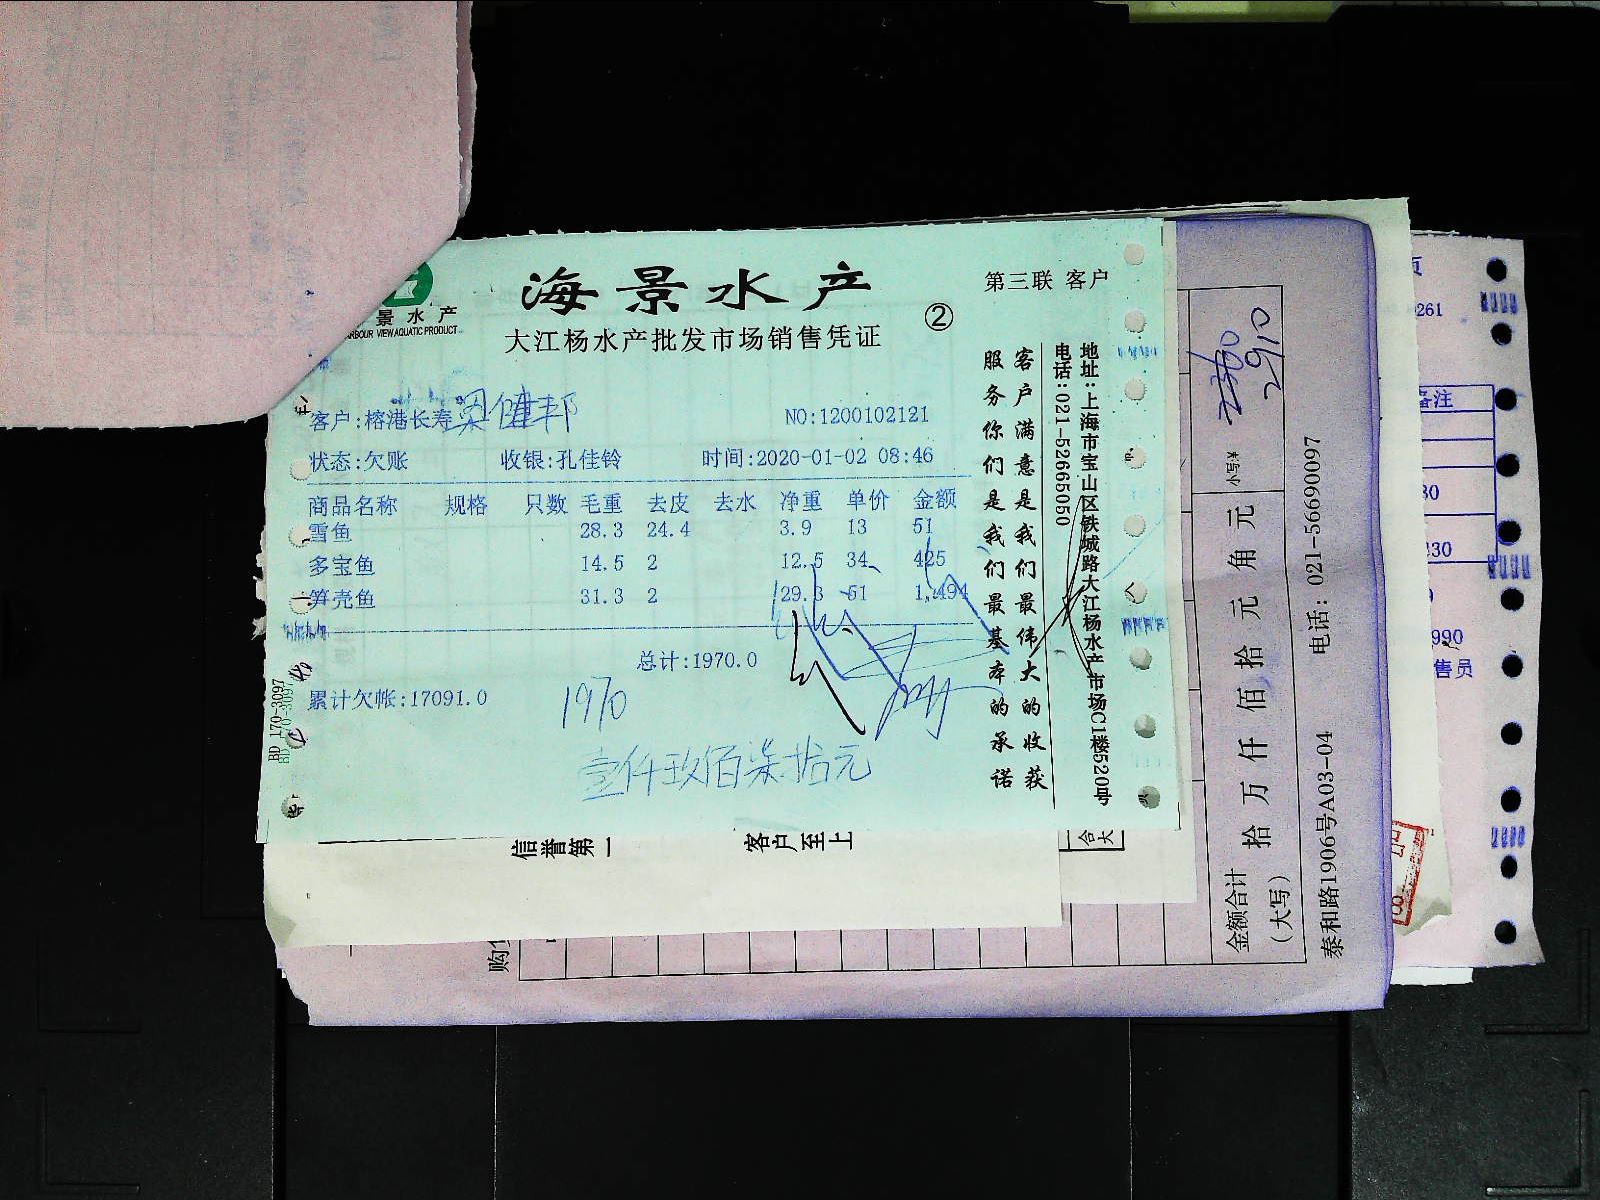 海景水产
第三联 客户
②
景水产
RBOUR VIEW AQUATIC PRODUCT
大江杨水产批发市场销售凭证
客户:榕港长寿
NO:1200102121
状态:欠账 收银:孔佳铃 时间:2020-01-02 08:46
商品名称 规格 只数 毛重 去皮 去水 净重 单价 金额
雪鱼 28.3 24.4 3.9 13 51
多宝鱼 14.5 2 12.5 34 425
笋壳鱼 31.3 2 29.3 51 1,494
总计:1970.0
累计欠帐:17091.0
1970
壹仟玖佰柒拾元
BD 170-3097
客户满意是我们最伟大的收获
服务你们是我们最基本的承诺
地址:上海市宝山区铁城路大江杨水产市场C1楼520号
电话:021-52665050
信誉第一
客户至上
合
大
购
金额合计
(大写)
拾 万 仟 佰 拾 元 角 元
小写¥
2910
泰和路1906号A03-04
电话: 021-56690097
261
备注
30
430
990
售员